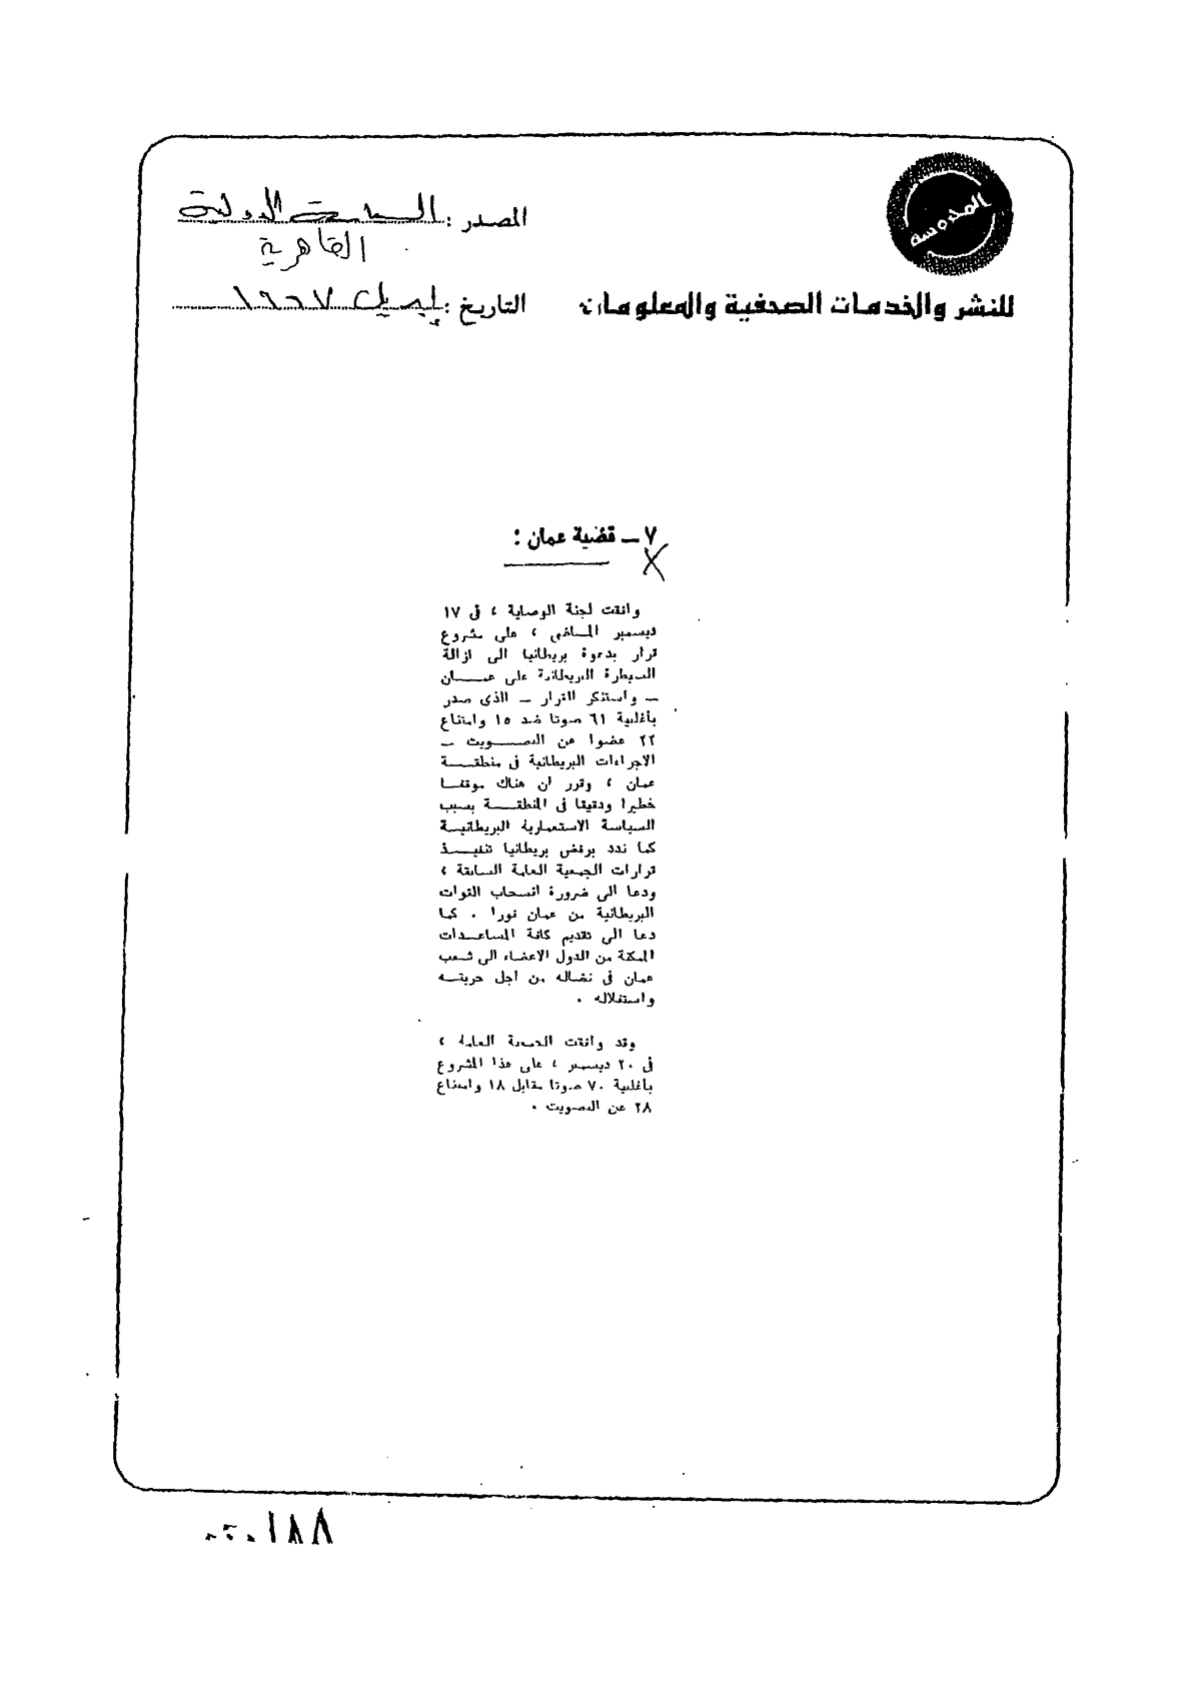 المحروسة
المصدر : السياسة الدولية
القاهرية
للنشر والخدمات الصحفية والمعلومات
التاريخ : إبريل ١٩٦٧
٧ ـ قضية عمان :
وافقت لجنة الوصاية ، فى ١٧
ديسمبر الماضى ، على مشروع
قرار بدعوة بريطانيا الى ازالة
السيطرة البريطانية على عمــــان
ـ واستنكر القرار ـ الذى صدر
بأغلبية ٦١ صوتا ضد ١٥ وامتناع
٢٢ عضوا عن التصــــويت ـ
الاجراءات البريطانية فى منطقــــة
عمان ، وقرر ان هناك موقفــا
خطيرا ودقيقا فى المنطقــــة بسبب
السياسة الاستعمارية البريطانيــة
كما ندد برفض بريطانيا تنفيــــذ
قرارات الجمعية العامة السابقة ،
ودعا الى ضرورة انسحاب القوات
البريطانية من عمان فورا . كما
دعا الى تقديم كافة المساعــدات
الممكنة من الدول الاعضاء الى شعب
عمان فى نضاله من اجل حريتــه
واستقلاله .
وقد وافقت الجمعية العامة ،
فى ٢٠ ديسمبر ، على هذا المشروع
بأغلبية ٧٠ صوتا مقابل ١٨ وامتناع
٢٨ عن التصويت .